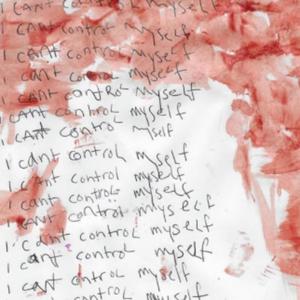 I CANT CONTROL MYSELF
I CANT CONTROL MYSELF
I CANT CONTROL MYSELF
I cant control myself
I cant control myself
I CANT CONTROL myself
I CAT CONTROL myself
I cant control myself
I cant control myself
I cant control myself
I cant control myself
I cant control myself
I cant control myself
I cant control myself
cant control myself